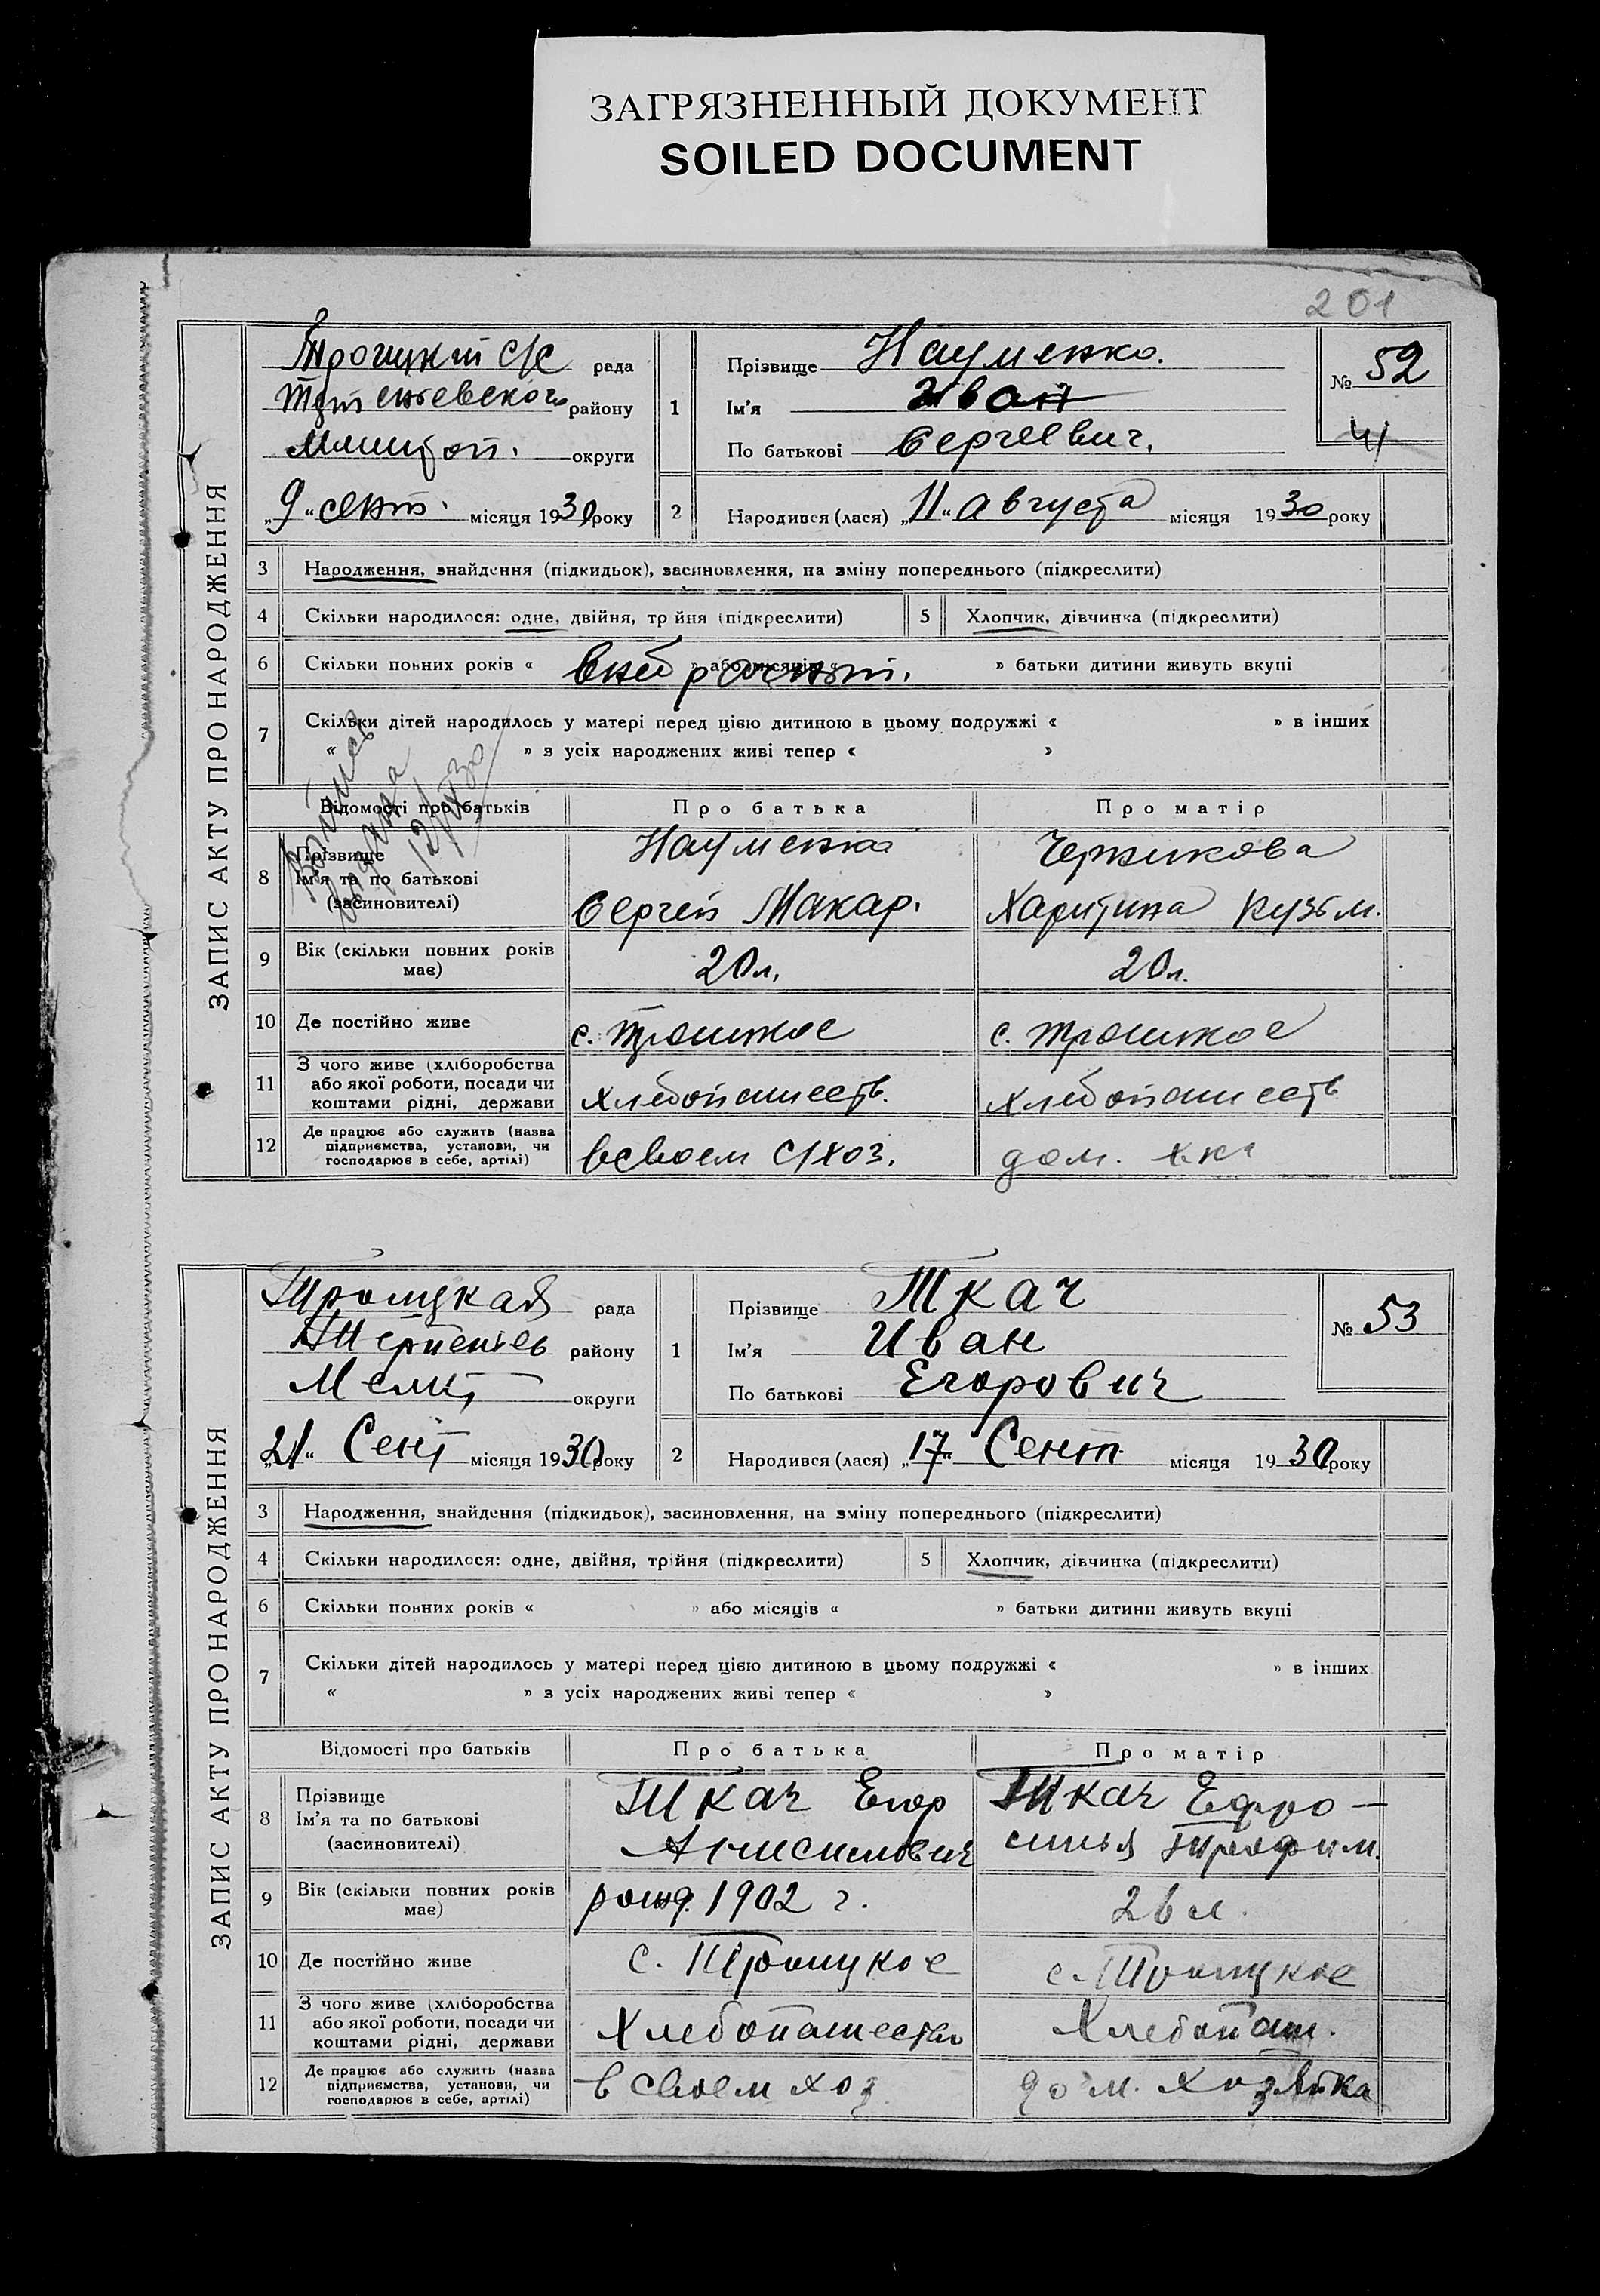 ЗАГРЯЗНЕННЫЙ ДОКУМЕНТ
SOILED DOCUMENT
201
ЗАПИС АКТУ ПРО НАРОДЖЕННЯ
Троицкий с/с рада
района
району
Мелитоп. округи
„9“ сент. місяця 1930 року
1
Прізвище Науменко.
Ім'я Иван
По батькові Сергеевич.
№ 52
41
2
Народився (лася) „11“ августа місяця 1930 року
3 Народження, знайдення (підкидьок), засиновлення, на зміну попереднього (підкреслити)
4 Скільки народилося: одне, двійня, трійня (підкреслити)
5 Хлопчик, дівчинка (підкреслити)
6 Скільки повних років « » або місяців « » батьки дитини живуть вкупі
7 Скільки дітей народилось у матері перед цією дитиною в цьому подружжі « » в інших
« » з усіх народжених живі тепер « »
Відомості про батьків Про батька Про матір
8 Прізвище
Ім'я та по батькові
(засиновителі)
Науменко
Сергей Макар.
Черникова
Харитина Кузьм.
9 Вік (скільки повних років
має)
20 л. 20 л.
10 Де постійно живе с. Троицкое с. Троицкое
11 З чого живе (хліборобства
або якої роботи, посади чи
коштами рідні, держави
хлебопашеств. хлебопашеств
12 Де працює або служить (назва
підприємства, установи, чи
господарює в себе, артілі)
в своем с/хоз. дом. х-ка
ЗАПИС АКТУ ПРО НАРОДЖЕННЯ
Троицкая рада
Терпеньев району
Мелит округи
„21“ Сент місяця 1930 року
1
Прізвище Ткач
Ім'я Иван
По батькові Егорович
№ 53
2
Народився (лася) „17“ Сент. місяця 1930 року
3 Народження, знайдення (підкидьок), засиновлення, на зміну попереднього (підкреслити)
4 Скільки народилося: одне, двійня, трійня (підкреслити)
5 Хлопчик, дівчинка (підкреслити)
6 Скільки повних років « » або місяців « » батьки дитини живуть вкупі
7 Скільки дітей народилось у матері перед цією дитиною в цьому подружжі « » в інших
« » з усіх народжених живі тепер « »
Відомості про батьків Про батька Про матір
8 Прізвище
Ім'я та по батькові
(засиновителі)
Ткач Егор
Ткач Ефро-
синья Трофим.
9 Вік (скільки повних років
має)
рожд. 1902 г.
10 Де постійно живе с. Троицкое с. Троицкое
11 З чого живе (хліборобства
або якої роботи, посади чи
коштами рідні, держави
Хлебопашество Хлебопаш.
12 Де працює або служить (назва
підприємства, установи, чи
господарює в себе, артілі)
в своем хоз дом. хозяйка